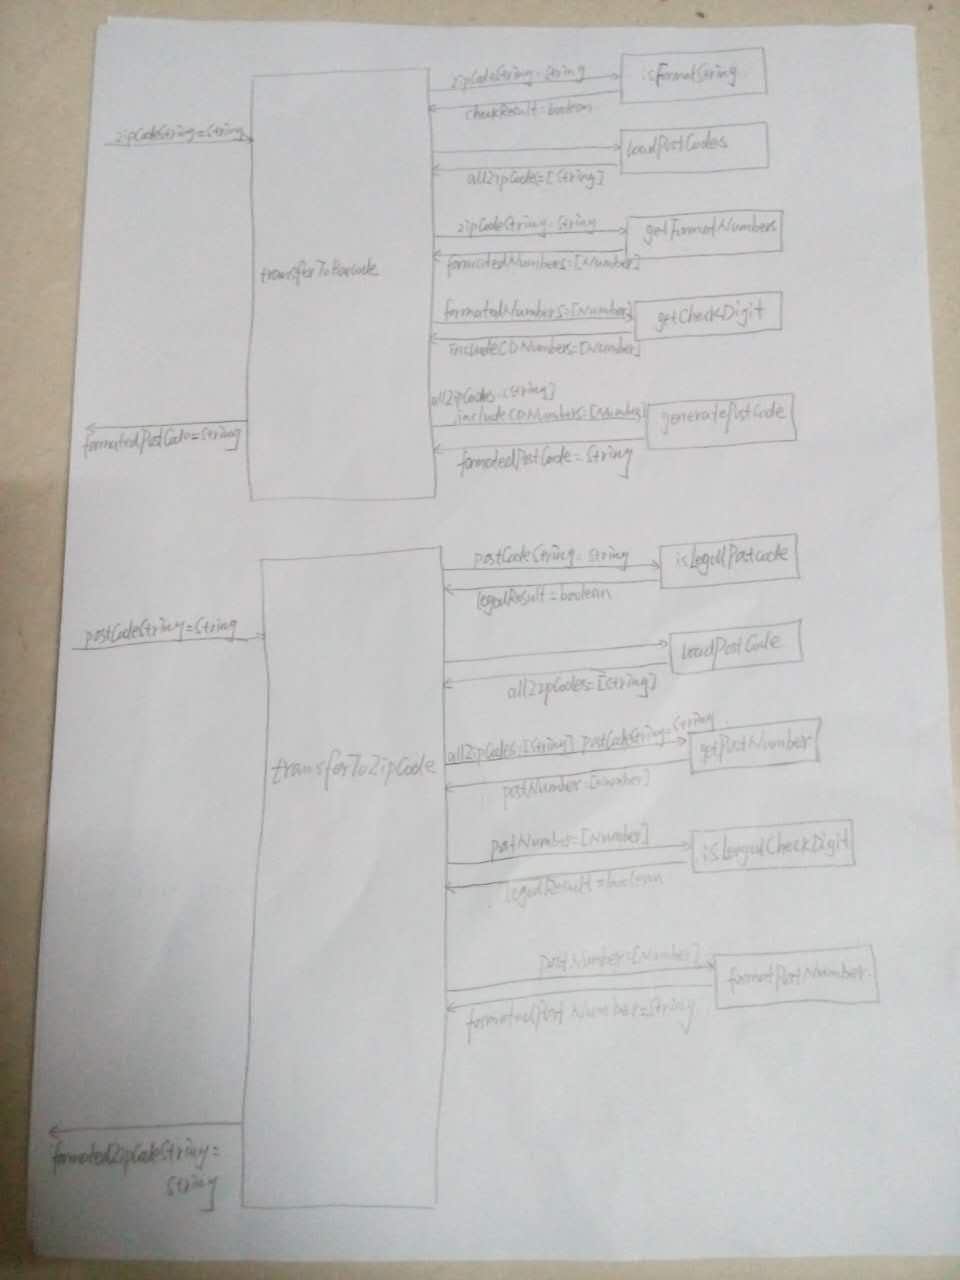 zipCodeString=String
transferToBarcode
formatedPostCode=String
zipCodeString=String
isFormatString
checkResult=boolean
loadPostCodes
allZipCodes=[String]
zipCodeString=String
getFormatNumbers
formatedNumbers=[Number]
formatedNumbers=[Number]
getCheckDigit
includeCDNumbers=[Number]
allZipCodes=[String]
includeCDNumbers=[Number]
generatePostCode
formatedPostCode=String
postCodeString=String
transferToZipCode
formatedZipCodeString=
String
postCodeString=String
isLegalPostcode
legalResult=boolean
loadPostCode
allZipCodes=[String]
allZipCodes=[String] postCodeString=String
getPostNumber
postNumber=[Number]
postNumber=[Number]
isLeegalCheckDigit
legalResult=boolean
postNumber=[Number]
formatPostNumber
formatedPost Number=String